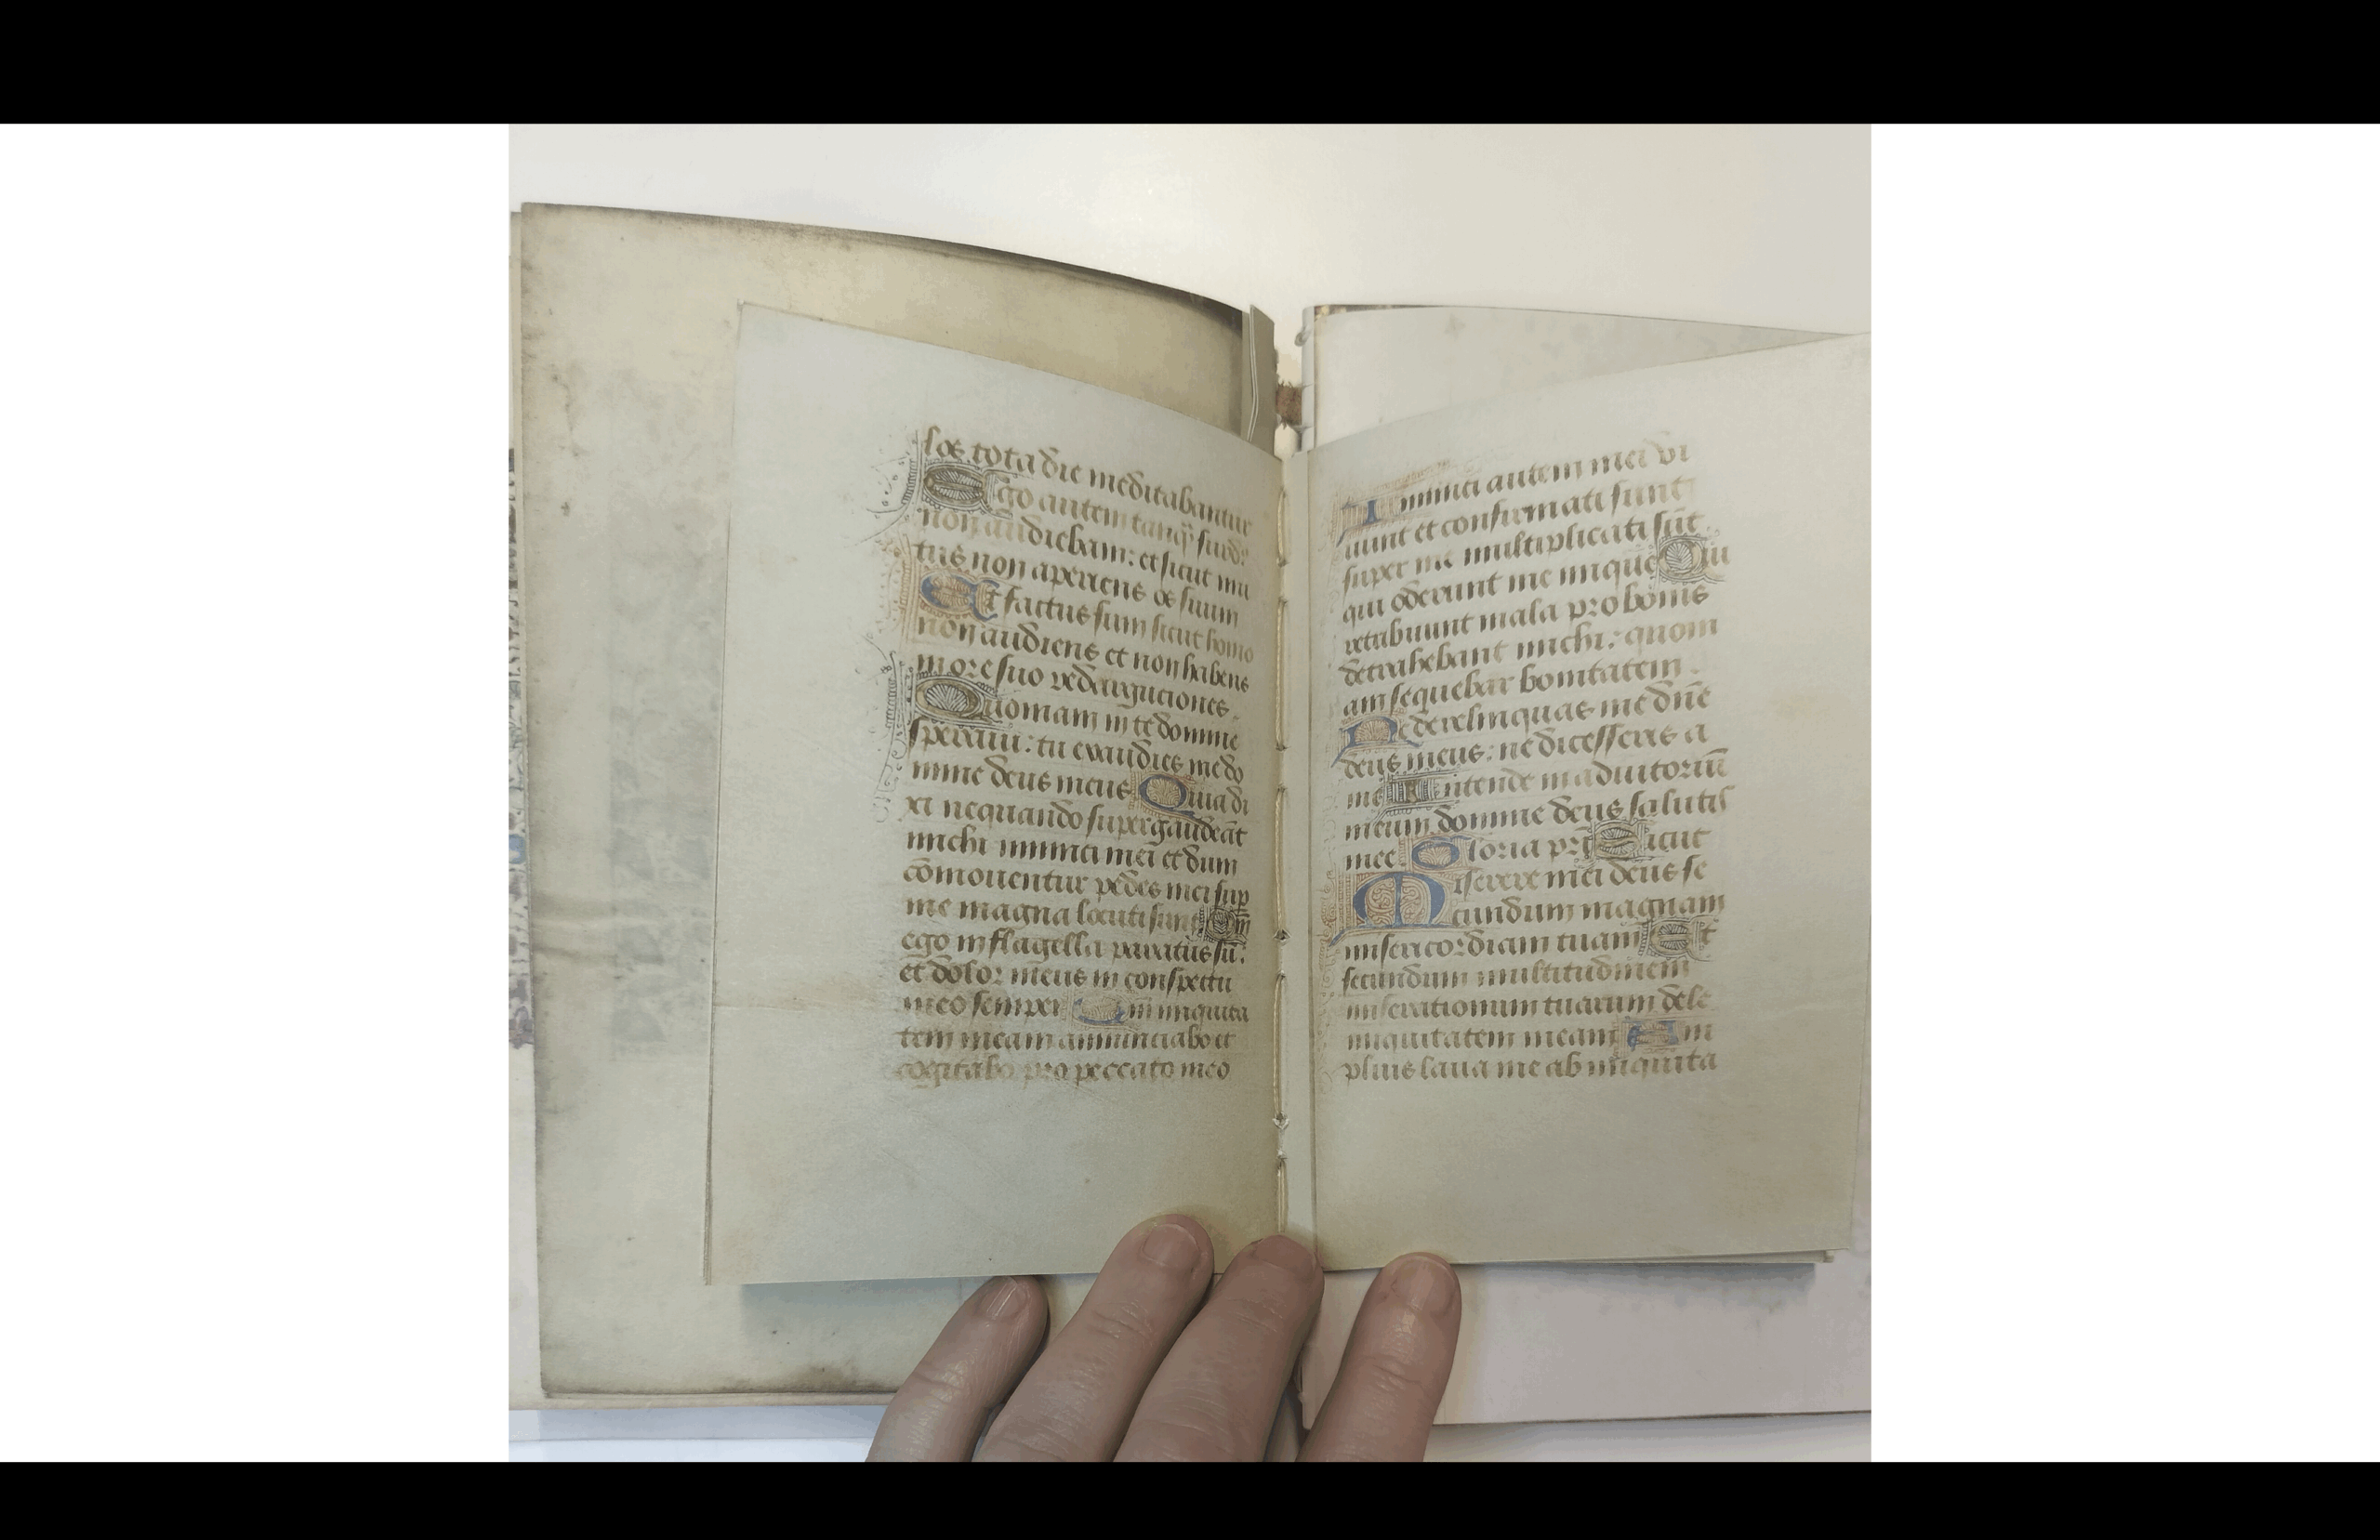 los tota die meditabantur
Ego autem tanq̄ surd᷒
non audiebam: et sicut mu
tus non aperiens os suum
Et factus sum sicut homo
non audiens et non habens
in ore suo redargutiones.
Quoniam in te domine
speraui: tu exaudies me do
mine deus meus Quia di
xi nequando supergaudeāt
michi inimici mei et dum
cōmouentur pedes mei sup
me magna locuti sunt Qm̄
ego in flagella paratus sū:
et dolor meus in conspectu
meo semper Qm̄ iniquita
tem meam annunciabo et
cogitabo pro peccato meo
Inimici autem mei vi
uunt et confirmati sunt
super me multiplicati sūt
qui oderunt me inique Qui
retribuunt mala pro bonis
detrahebant michi: quoni
am sequebar bonitatem.
Ne derelinquas me dn̄e
deus meus: ne dicesseris a
me Intende in adiutoriū
meum domine deus salutis
mee Gloria pr̄i Sicut
Miserere mei deus se
cundum magnam
misericordiam tuam Et
secundum multitudinem
miserationum tuarum dele
iniquitatem meam Am
plius laua me ab iniquita